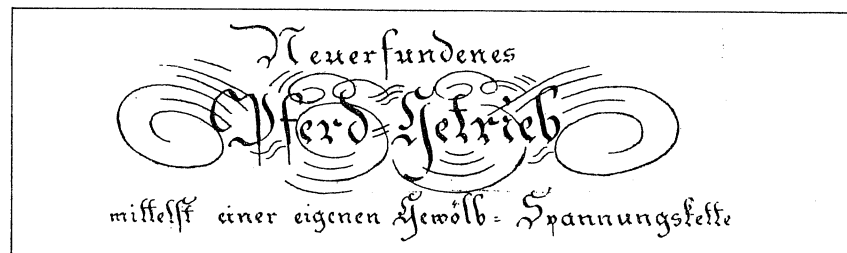 Neuerfundenes
Pferd=Getrieb
mittelst einer eigenen Gewölb= Spannungskette